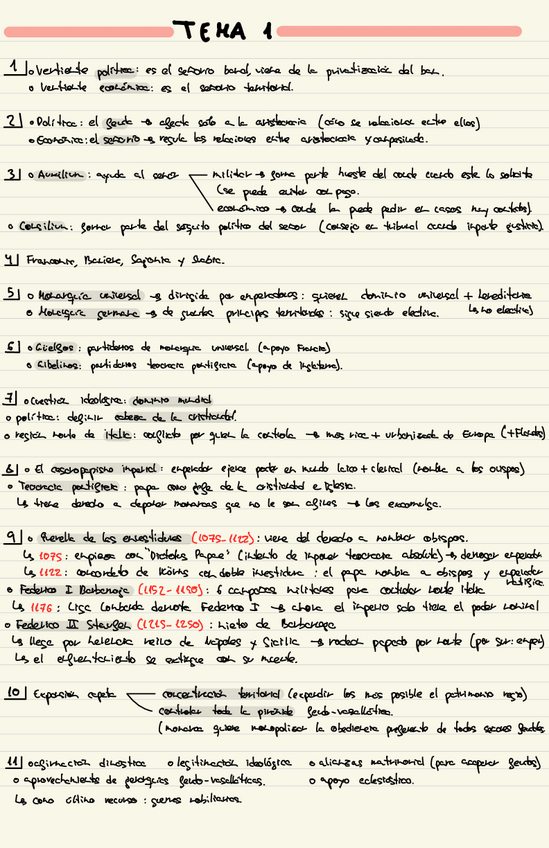 TEMA 1
1 o Vertiente política: es el señorío banal, viene de la privatización del ban.
o Vertiente económica: es el señorío territorial.
2 o Política: el feudo → afecta solo a la aristocracia (cómo se relacionan entre ellos)
o Económica: el señorío → regula las relaciones entre aristocracia y campesinado.
3 o Auxilium: ayuda al señor militar → forma parte hueste del conde cuando este lo solicita
(se puede evitar con pago.
económico → conde la puede pedir en casos muy contados).
o Consilium: formar parte del séquito político del señor (consejo en tribunal cuando imparte justicia).
4 Franconia, Baviera, Sajonia y Suabia.
5 o Monarquía universal → dirigida por emperadores: quieren dominio universal + hereditaria
o Monarquía germana → de grandes príncipes territoriales: sigue siendo electiva. ↳ no electiva)
6 o Güelfos: partidarios de monarquía universal (apoyo Francia)
o Gibelinos: partidarios teocracia pontificia (apoyo de Inglaterra).
7 o cuestión ideológica: dominio mundial
o política: definir cabeza de la cristiandad.
o región norte de Italia: conflicto por quien la controla → más rica + urbanizada de Europa (+Flandes)
8 o El cesaropapismo imperial: emperador ejerce poder en mundo laico + clerical (nombra a los obispos)
o Teocracia pontificia: papa como jefe de la cristiandad e iglesia.
↳ tiene derecho a deponer monarcas que no le son afines → los excomulga.
9 o Querella de las investiduras (1075-1122): viene del derecho a nombrar obispos.
↳ 1075: empieza con "Dictatus Papae" (intento de imponer teocracia absoluta) → deponer emperador
↳ 1122: concordato de Worms con doble investidura: el papa nombra a obispos y emperador ratifica.
o Federico I Barbarroja (1152-1190): 6 campañas militares para controlar norte Italia
↳ 1176: Liga Lombarda derrota Federico I → ahora el imperio solo tiene el poder nominal
o Federico II Staufen (1215-1250): nieto de Barbarroja
↳ llega por herencia reino de Nápoles y Sicilia → rodean papado por norte (por sur: emper)
↳ el enfrentamiento se extingue con su muerte.
10 Expansión capeta concentración territorial (expandir los más posible el patrimonio regio)
controlar toda la pirámide feudo-vasallática.
(monarca quiere monopolizar la obediencia preferente de todos señores feudales
11 o afirmación dinástica o legitimación ideológica o alianzas matrimonial (para acaparar feudos)
o aprovechamiento de jerarquías feudo-vasalláticas. o apoyo eclesiástico.
↳ como último recurso: guerras nobiliarias.